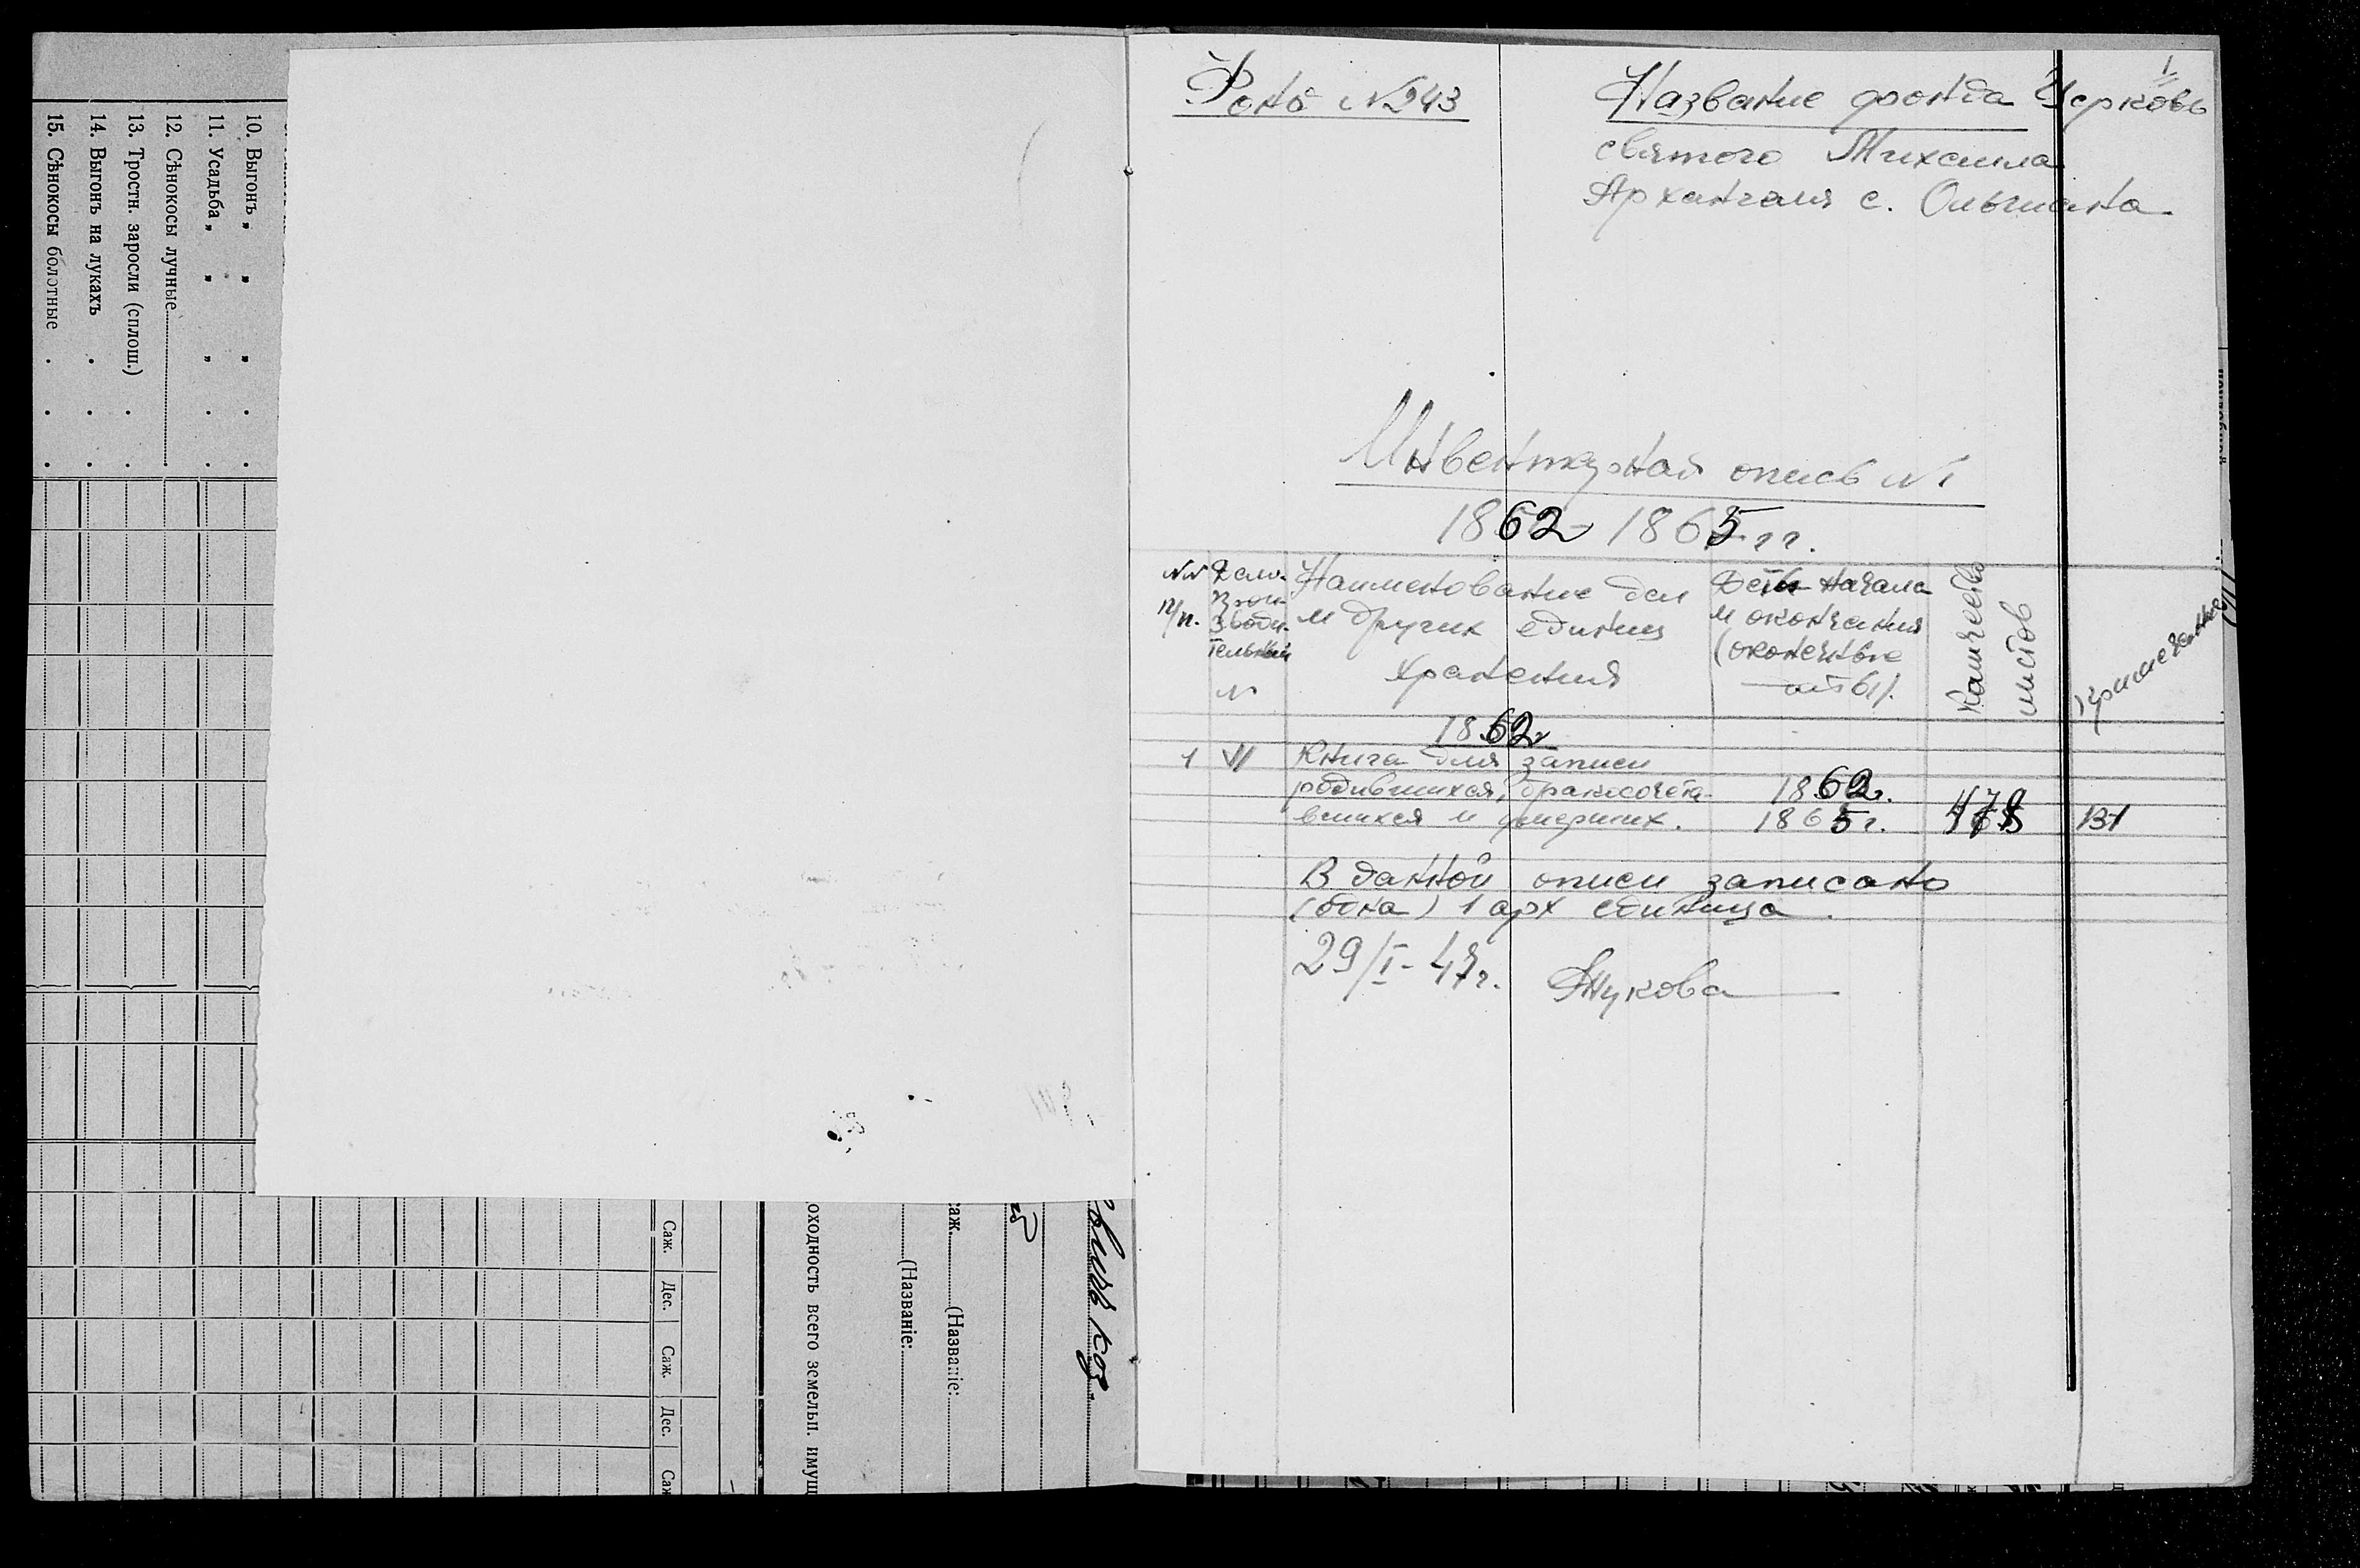 10. Выгонъ „ „ „
11. Усадьба „ „ „
12. Сѣнокосы лучные
13. Тростн. заросли (сплош.)
14. Выгонъ на лукахъ
15. Сѣнокосы болотные
Саж. Дес. Саж. Дес. Саж
оходность всего земельн. имущ
(Названіе:
саж. (Названіе:
1
Фонд №243
Название фонда Церковь
святого Михаила
Архангаля с. Ольгиана
Инвентарная опись №1
1862-1865 гг.
№№ п/п.
Дело-
прои-
зводи-
тельный
№
Наименование дел
и других единиц
хранения
Даты начала
и окончания
(оконечные
даты).
Количество
листов
Примечание
1862
1 VI Книга для записи
родившихся, бракосочета- 1862.
вшихся и умерших. 1865г. 478 В-1
В данной описи записано
(одна) 1 арх единица.
29/I-47г. Жукова